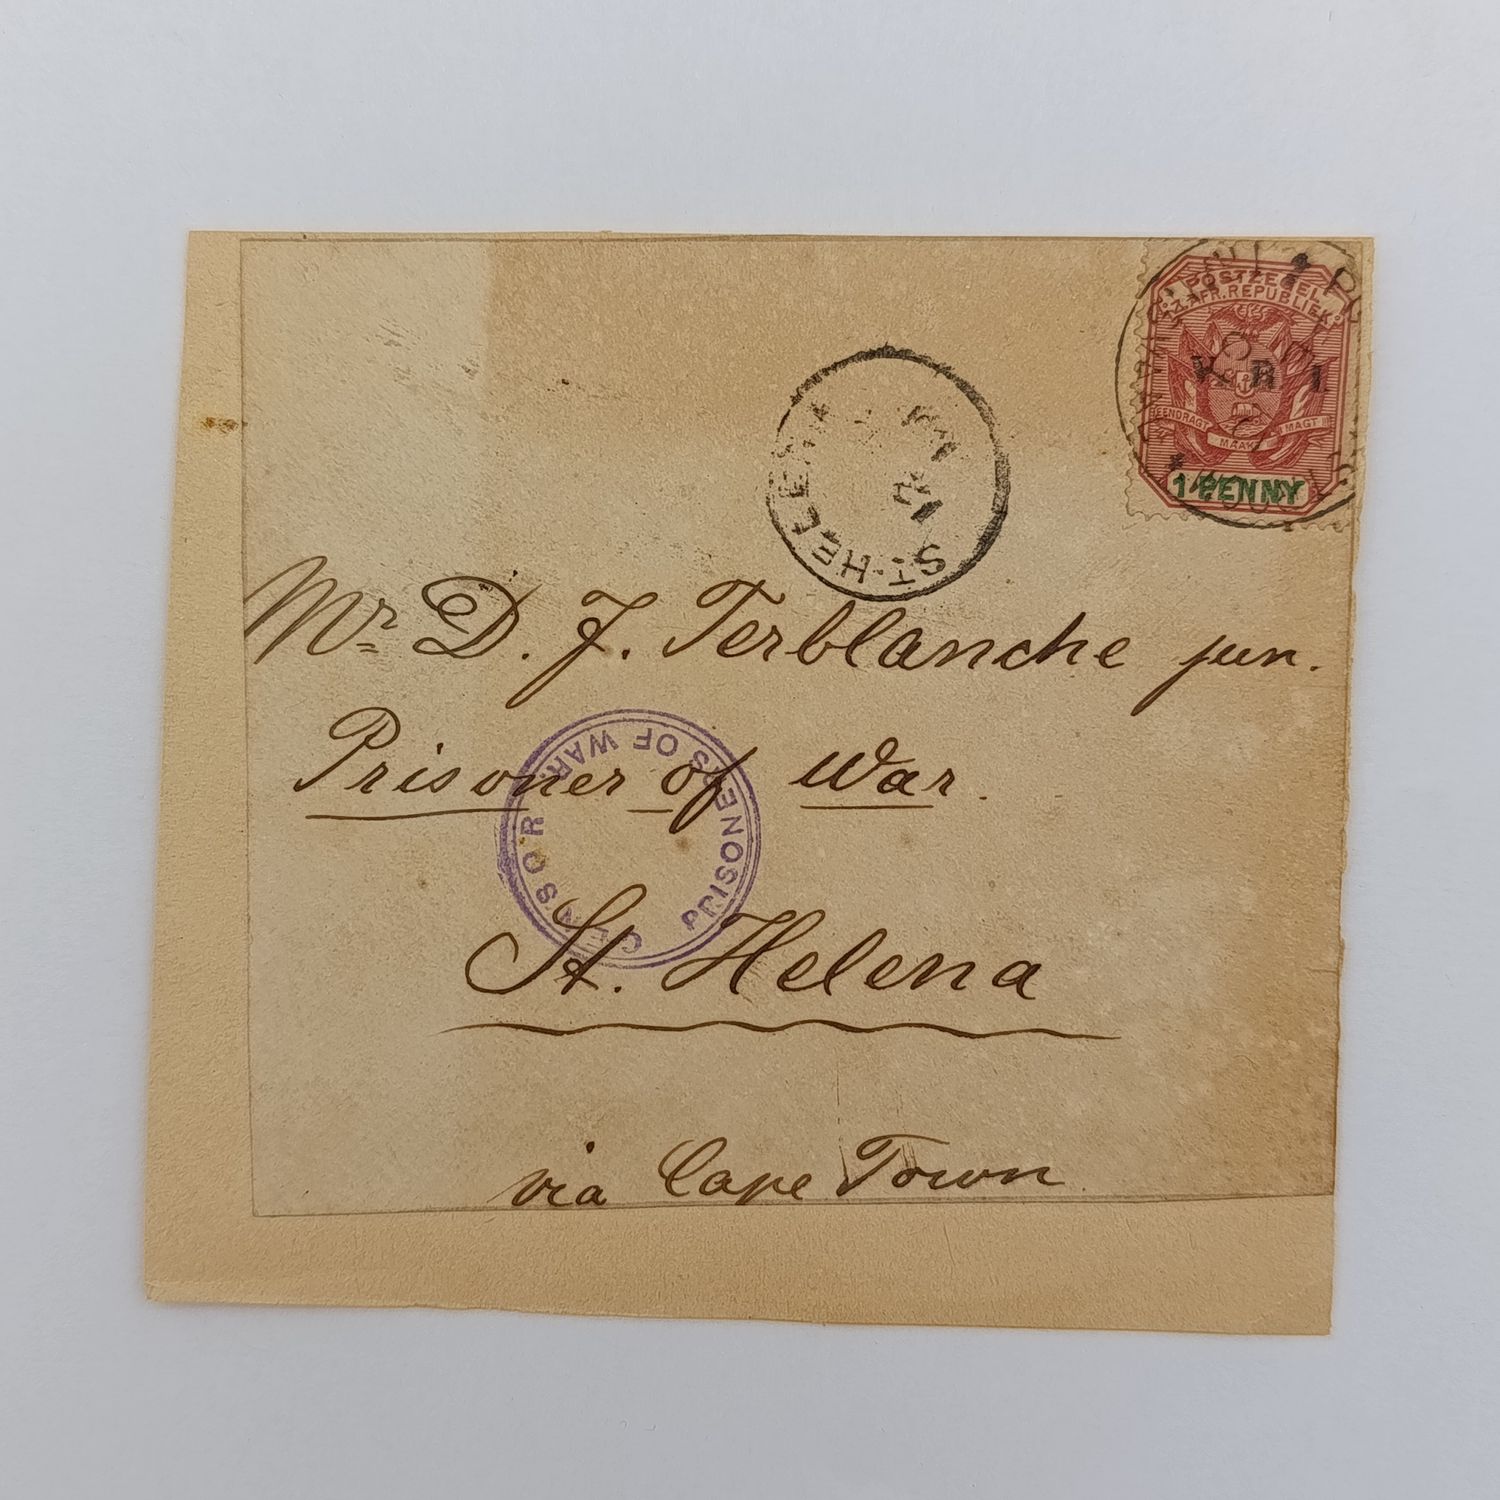 POSTZEGEL
Z. AFR. REPUBLIEK
V. R. I.
EENDRAGT MAAKT MAGT
1 PENNY
ST. HELENA
Mr D. J. Terblanche jun.
Prisoner of War.
CENSOR PRISONERS OF WAR
St. Helena
via Cape Town